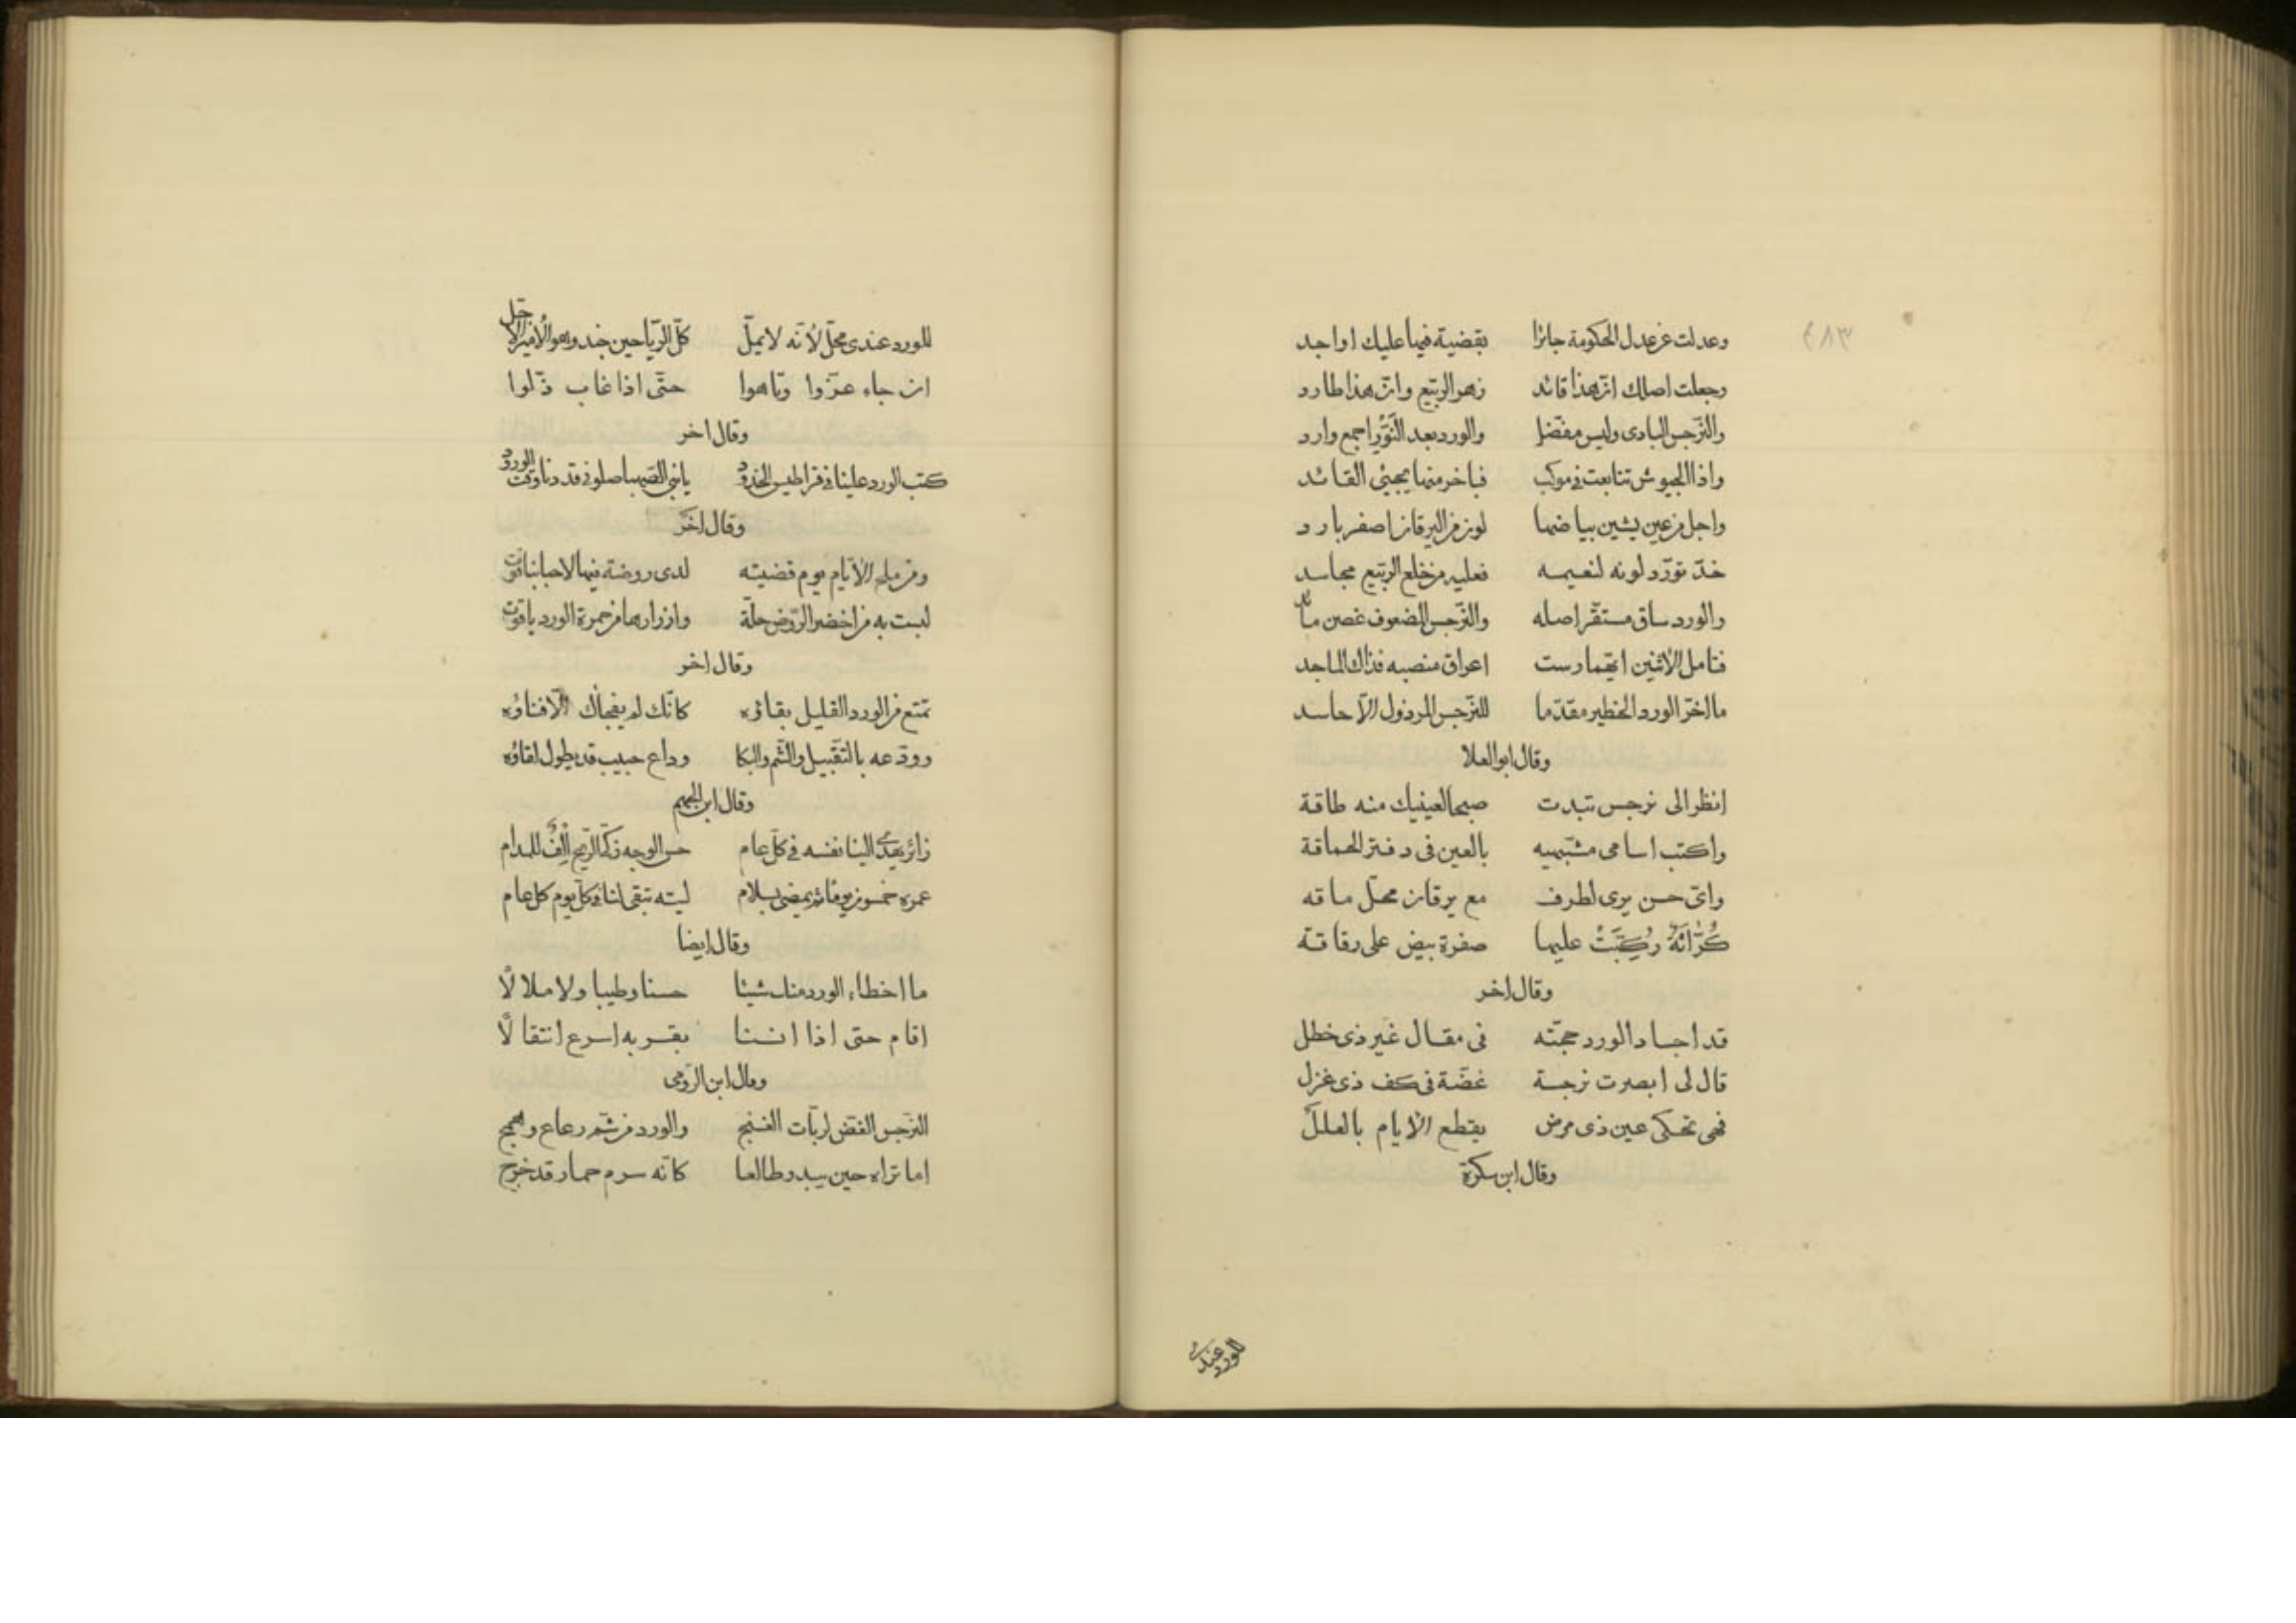 ٤٨٣
وعدلت عن عدل الحكومة جائرا بقضية فيها عليك اواجد
وجعلت اصلك ان هذا قائد زهو الربيع وان هذا طارد
والنرجس البادى وليس مفضل والورد بعد النَّوْر اجمع وارد
واذا الجيوش تتابعت فى موكب فبآخر منها يجيئ القائد
واجل من عين يشين بياضها لون من اليرقان اصفر بارد
خدّ تورّد لونه لنعيمه فعليه من خلع الربيع مجاسد
والورد ساق مستقر اصله والنرجس المضعوف غصن مائد
فتامل الاثنين ايهما رست اعراق منصبه فذاك الماجد
ما اخرّ الورد الخطير مقدّما للنرجس المرذول الّا حاسد
وقال ابو العلا
انظر الى نرجس تبدت صبحا لعينيك منه طاقة
واكتب اسامى مشبهيه بالعين فى دفتر الحماقة
واىّ حسن يرى لطرف مع يرقان محلّ ماقه
كُرّاثَةٌ رُكِّبَتْ عليها صفرة بيض على رقاقة
وقال اخر
قد اجاد الورد حجّته فى مقال غير ذى خطل
قال لى ابصرت نرجسة غضّة فى كف ذى غزل
فهى تحكى عين ذى مرض يقطع الايام بالعلل
وقال ابن سكرة
للورد عندى
للورد عندى محلّ لانّه لا يملّ كلّ الرّياحين جند وهو الامير الاجلّ
ان جاء عزّوا وتاهوا حتّى اذا غاب ذلّوا
وقال اخر
كتب الورد علينا فى قراطيس الخدود يا بنى الصهبا صلونى قد دنا وقت الورود
وقال اخر
ومن ملح الايام يوم قضيته لدى روضة فيها لاحبابنا قوت
لبست به من اخضر الرّوض حلّة وازرارها من حمرة الورد ياقوت
وقال اخر
تمتع من الورد القليل بقاؤه كانّك لم يفجاك الّا فناؤه
وودّعه بالتقبيل والشم والبكا وداع حبيب قد يطول لقاؤه
وقال ابن الجهم
زائر يهدى الينا نفسه فى كلّ عام حسن الوجه زكىّ الريح اِلْفٌ للمدام
عمره خمسون يوما ثم يمضى بسلام ليته تبقى لنا فى كل يوم كل عام
وقال ايضا
ما اخطاء الورد منك شيئا حسنا وطيبا ولا ملالاً
اقام حتى اذا انسنا بقربه اسرع انتقالاً
وقال ابن الرّومى
النرجس الغضّ لربّات الغنج والورد من شم رعاع وهمج
اما تراه حين يبدو طالعا كانّه سرم حمار قد خرج